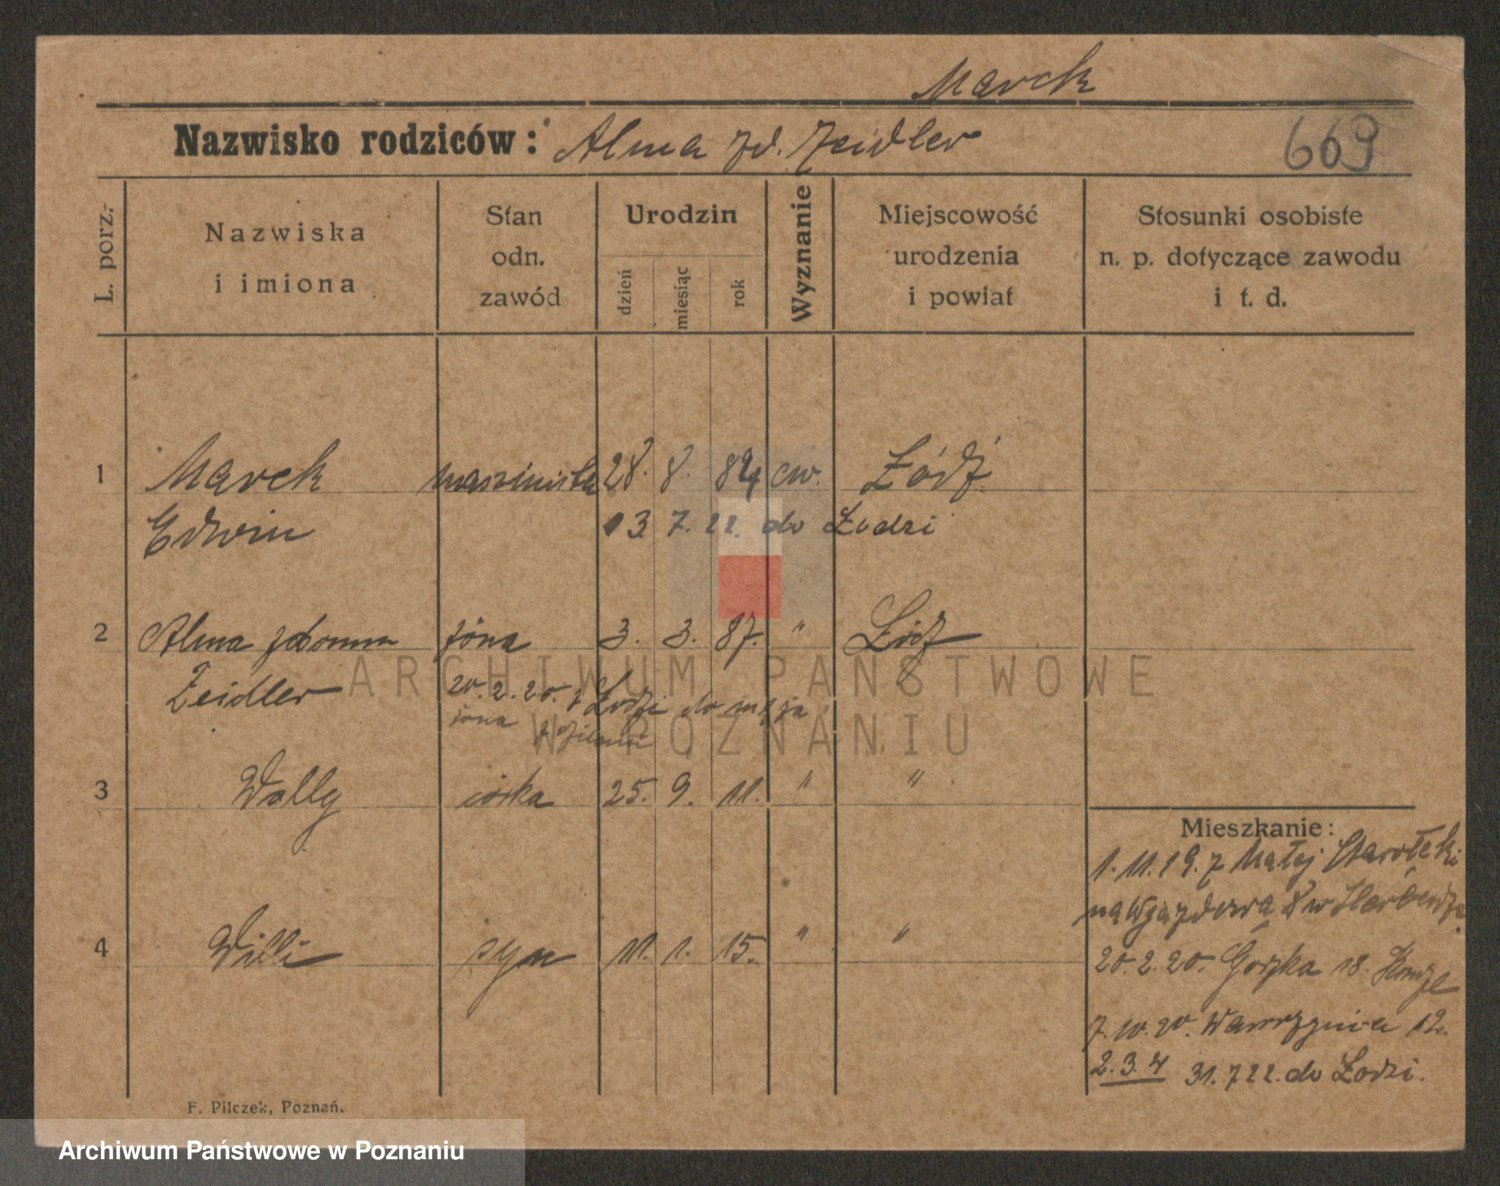 Marek
Nazwisko rodziców: Alma zd. Zeidler
669
L. porz.
Nazwiska
i imiona
Stan
odn.
zawód
Urodzin
dzień
miesiąc
rok
Wyznanie
Miejscowość
urodzenia
i powiat
Stosunki osobiste
n. p. dotyczące zawodu
i t. d.
1 Marek maszinista 28. 8. 84 ew. Łódź
Edwin 13 7. 22. do Łodzi
2 Alma żona 3. 3. 87. " Łódź
Zeidler 20. 2. 20. z Łodzi do męża
żona
3 Wally córka 25. 9. 11. " "
4 Willi syn 11. 1. 15. " "
Mieszkanie:
1. 11. 19. z Małej Starołęki
na Wjazdowa 8 w
20. 2. 20. Górka 18.
7. 10. 20. Wawrzyńca 12.
2. 3. 4 31. 7 22. do Łodzi.
F. Pilczek, Poznań.
ARCHIWUM PAŃSTWOWE
W POZNANIU
Archiwum Państwowe w Poznaniu